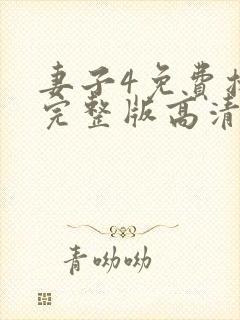 妻子4免費
完整版高清
青呦呦